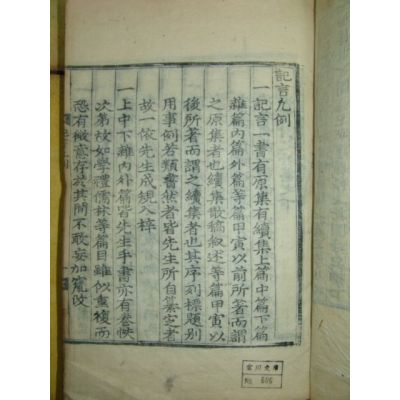 記言凡例
一記言一書有原集有續集上篇中篇下篇
雜篇內篇外篇等篇甲寅以前所著而謂
之原集者也續集散稿敘述等篇甲寅以
後所著而謂之續集者也其序列標題別
用事例若類會然者皆先生所自纂定者
故一依先生成規入梓
一上中下雜內外篇皆先生手書亦有卷帙
次第故如學禮儒林等篇目雖似重復而
恐有微意存於其間不敢妄加覔改